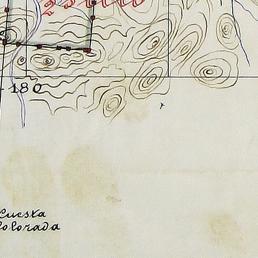 180
Cuesta
Colorada